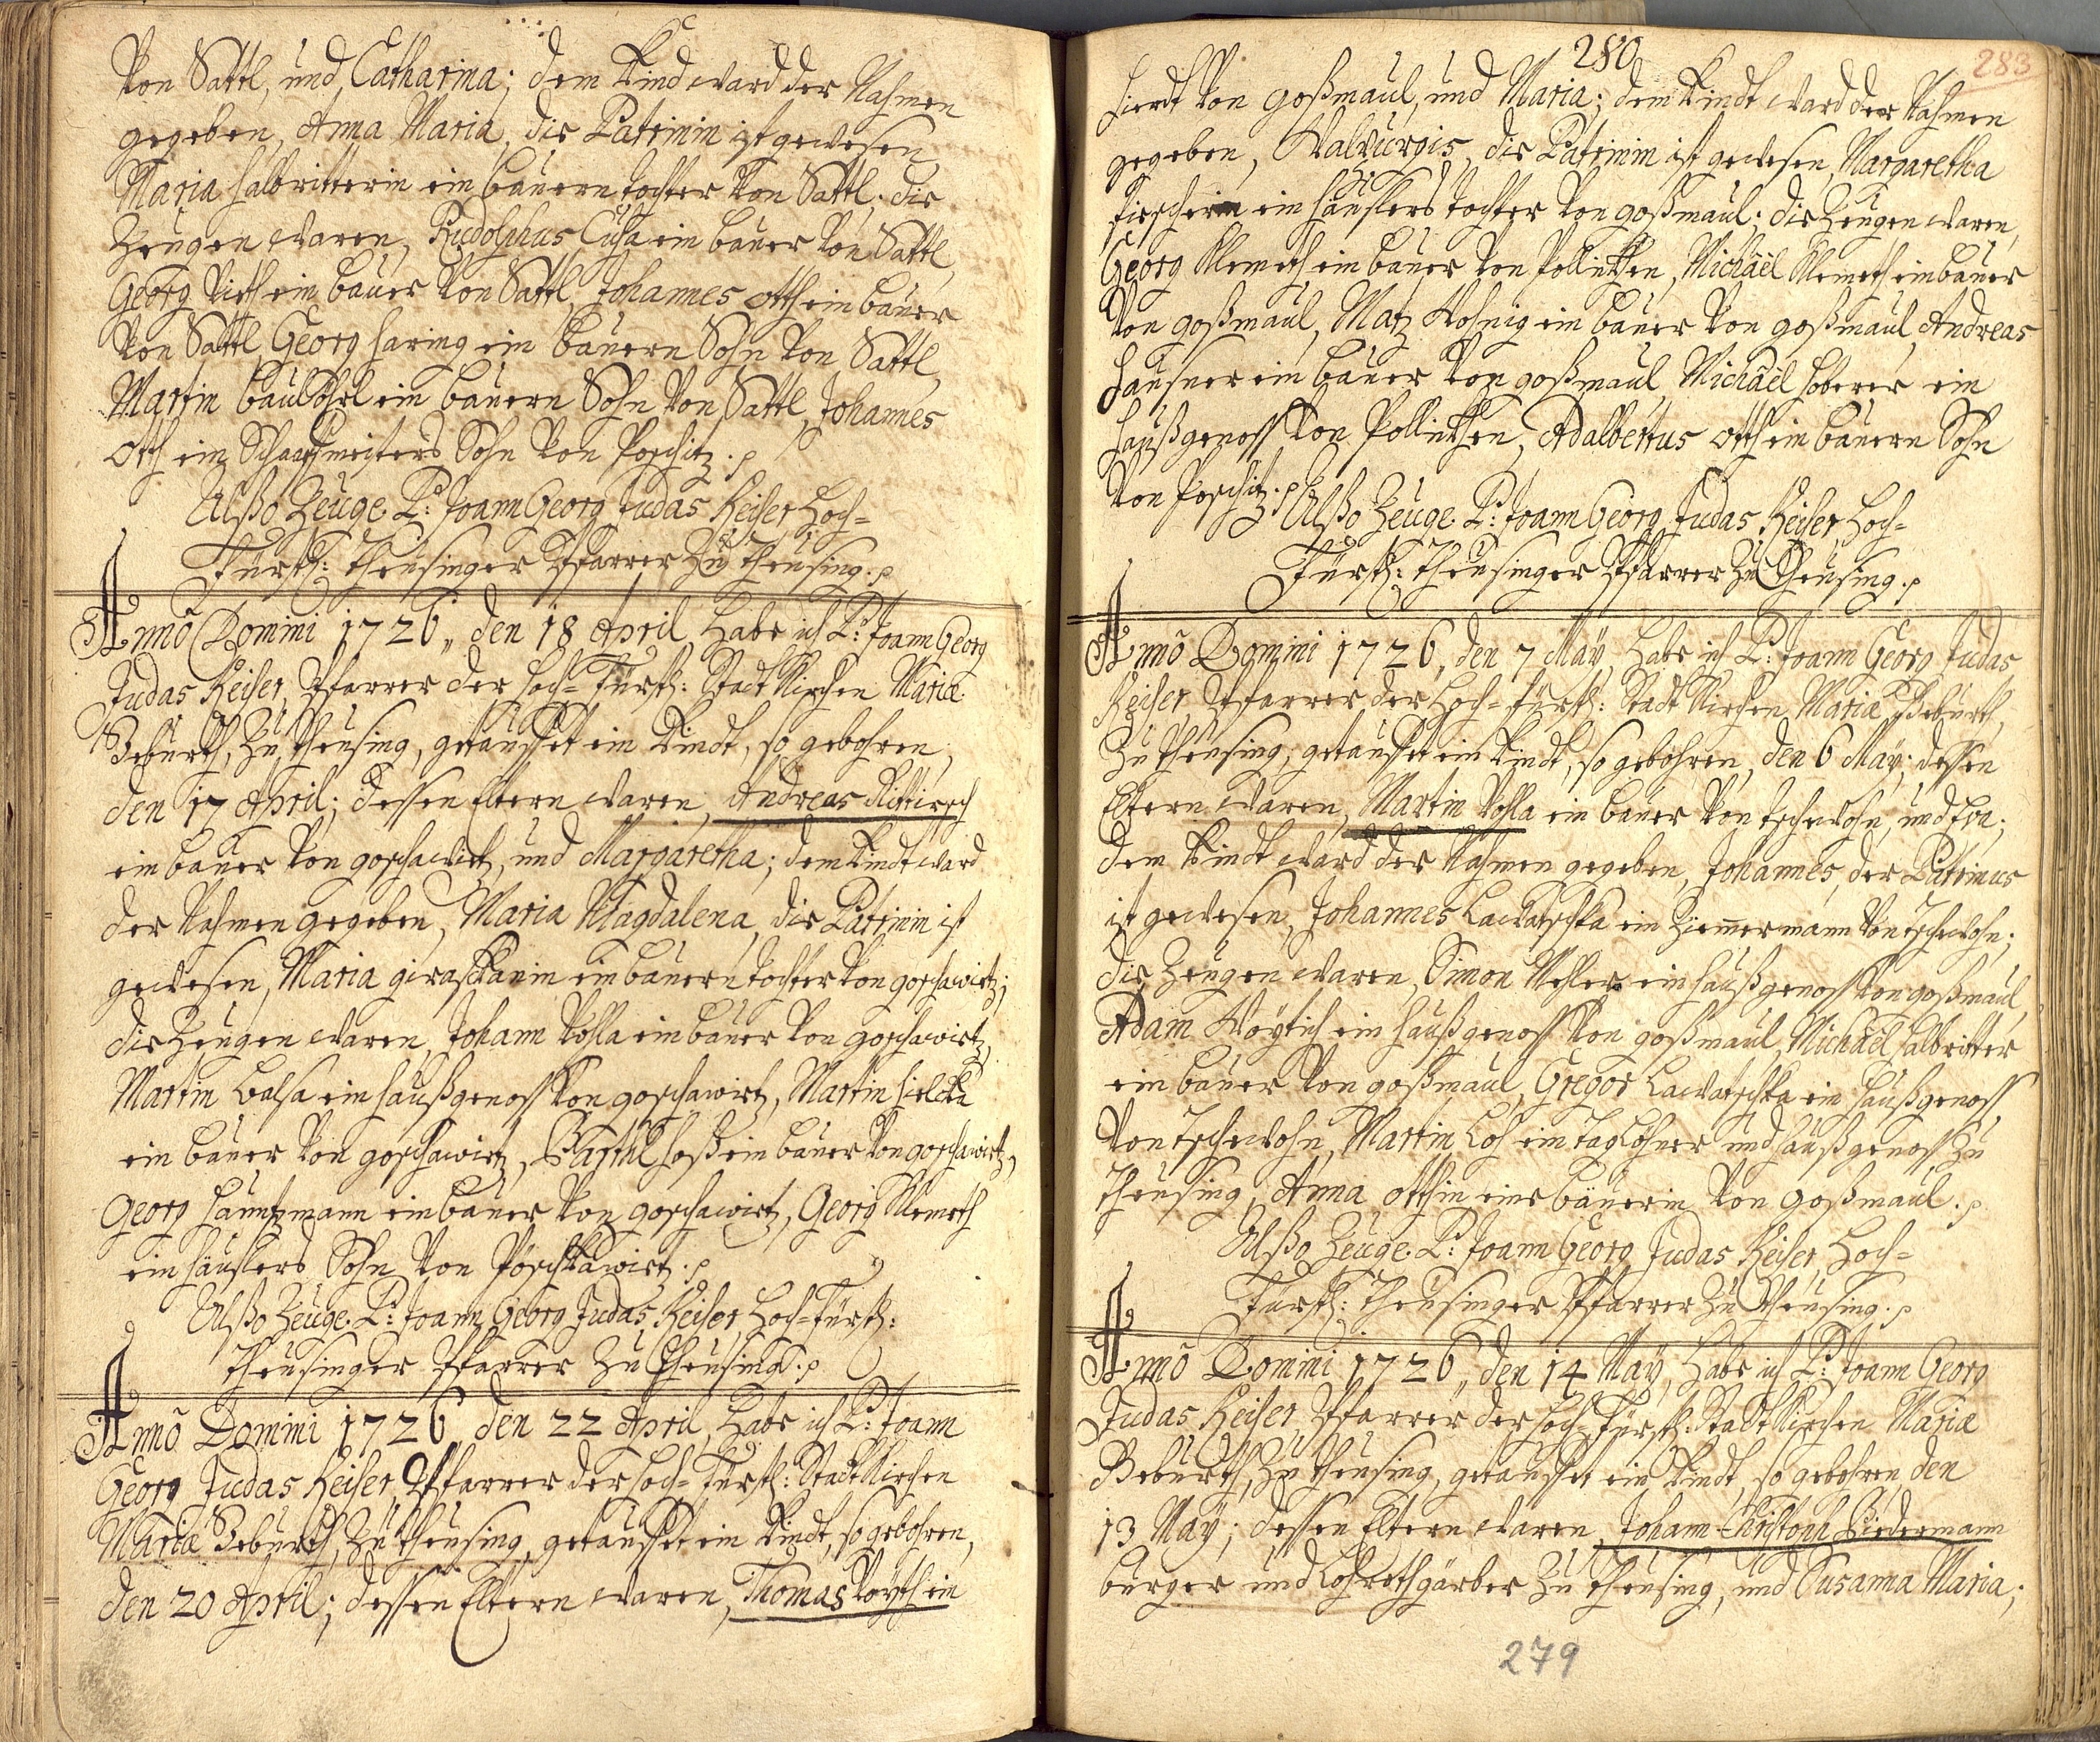 Von Sattl, und Catharina; dem Kind ward der Nahmen
gegeben, Anna Maria, die Patrinin ist gewesen
Maria Halbritterin ein bauern tochter Von Sattl; die
Zeugen waren, Rudolphus Cusa ein bauer Von Sattl,
Georg Vieth ein bauer Von Sattl, Johannes otth ein bauer
Von Sattl, Georg Haring ein bauern Sohn Von Sattl,
Martin ein bauern Sohn Von Sattl, Johannes
Otth ein Schaafmeisters Sohn Von Poschitz.
Alßo Zeuge P: Joann Georg Judas Keiser Hoch=
Fürstl: Theusinger Pfarrer Zu Theusing.
Anno Domini 1726, den 18 April, Habe ich P: Joann Georg
Judas Keiser, Pfarrer der Hoch=Fürstl: Stadt Kirchen Mariæ
Geburth, Zu Theusing, getauffet ein Kindt, so gebohren,
den 17 April; dessen Eltern waren, Andreas Rittirsch
ein bauer Von goschawirtz, und Margaretha; dem Kindt ward
der Nahmen gegeben, Maria Magdalena, die Patrinin ist
gewesen, Maria ein bauern tochter Von goschawirtz;
die Zeugen waren, Johann Vohla ein bauer Von goschawirtz,
Martin Balsa ein haußgenoss Von goschawirtz, Martin
ein bauer Von goschawirtz, Barthl Hoß ein bauer Von goschawirtz,
Georg ein bauer Von goschawirtz, Georg Klemeth
ein häuslers Sohn Von Poschkawirtz.
Alßo Zeuge P: Joann Georg Judas Keiser, Hoch=Fürstl:
Theusinger Pfarrer Zu Theusing.
Anno Domini 1726, den 22 April, Habe ich P: Joann
Georg Judas Keiser, Pfarrer der Hoch=Fürstl: Stadt Kirchen
Mariæ Geburth, Zu Theusing, getauffet ein Kindt, so gebohren,
den 20 April; dessen Eltern waren, Thomas Voyth ein
280
283
Hierdt Von goßmaul, und Maria; dem Kindt ward der Nahmen
gegeben, Walburgis, die Patrinin ist gewesen, Margaretha
Fischerin ein häuslers tochter Von goßmaul; die Zeugen waren,
Georg Klemeth ein bauer Von Pollinken, Michaël Klemeth ein bauer
Von goßmaul, Matz ein bauer Von goßmaul, Andreas
Hausner ein bauer Von goßmaul, Michaël Hoberer ein
haußgenoss Von Pollinken, Adalbertus otth ein bauern Sohn
Von Poschitz.
Alßo Zeuge P: Joann Georg Judas Keiser, Hoch=
Fürstl: Theusinger Pfarrer Zu Theusing.
Anno Domini 1726, den 7 May, Habe ich P: Joann Georg Judas
Keiser, Pfarrer der Hoch=Fürstl: Stadt Kirchen, Mariæ Geburth,
Zu Theusing, getauffet ein Kindt, so gebohren, den 6 May; dessen
Eltern waren, Martin Vohla ein bauer Von tschewohn, und Eva;
dem Kindt ward der Nahmen gegeben, Johannes, der Patrinus
ist gewesen, Johannes Lawatschka ein Zimmermann Von tschewohn;
die Zeugen waren, Simon ein haußgenoss Von goßmaul,
Adam Woytich ein haußgenoss Von goßmaul, Michaël Halbritter
ein bauer Von goßmaul, Gregor Lawatschka ein haußgenoss
Von tschewohn, Martin Loh ein taglöhner und haußgenoss Zu
Theusing, Anna otthin eine bäuerin Von goßmaul.
Alßo Zeuge P: Joann Georg Judas Keiser, Hoch=
Fürstl: Theusinger Pfarrer Zu Theusing.
Anno Domini 1726, den 14 May, Habe ich P: Joann Georg
Judas Keiser, Pfarrer der Hoch=Fürstl: Stadt Kirchen Mariæ
Geburth, Zu Theusing, getauffet ein Kindt, so gebohren, den
13 May; dessen Eltern waren, Johann Christoph Biedermann
burger und Lohrothgärber Zu Theusing, und Susanna Maria;
279